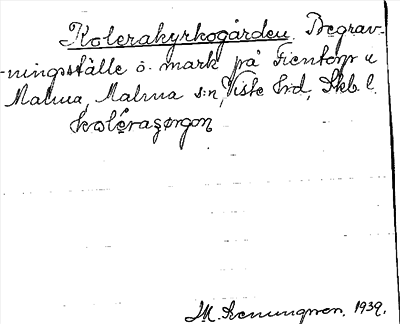 Kolerakyrkogården. Begrav-
-ningsställe o. mark på Fientorp u
Malma, Malma s:n, Viste hrd, Skb. l.
kolérasørgon
M. 1939.